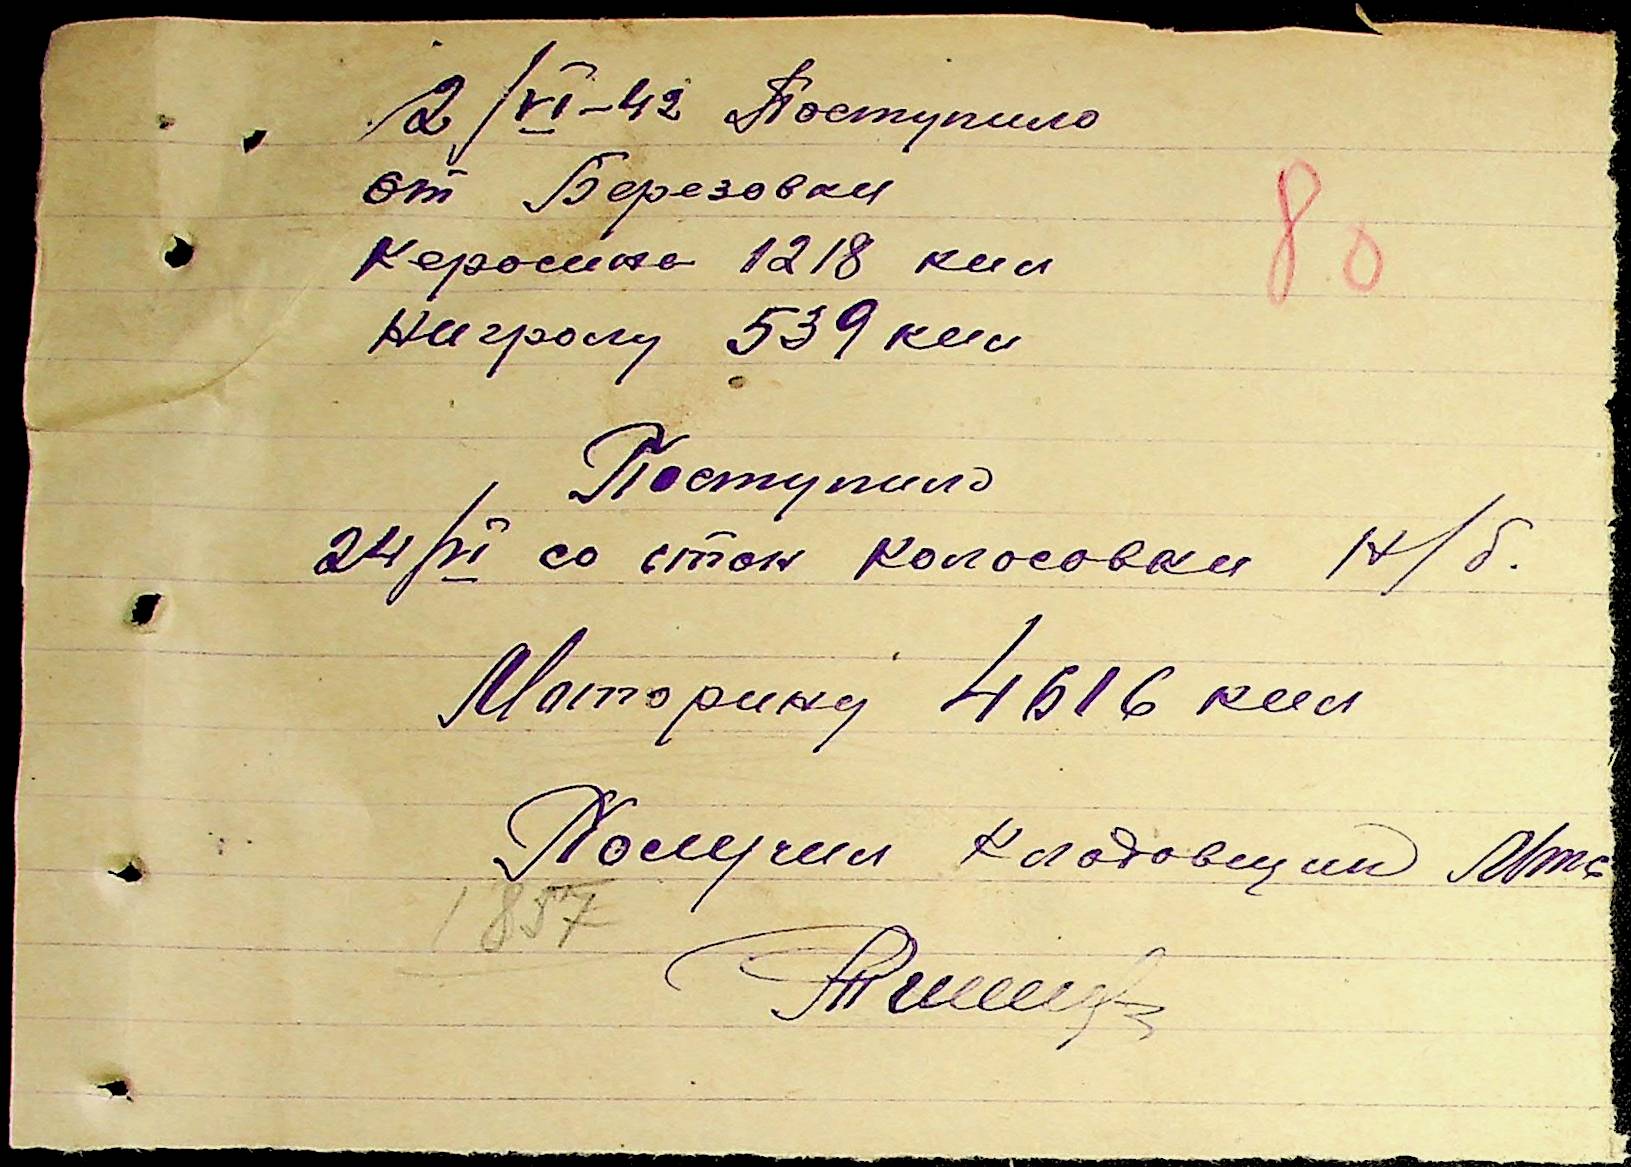 2/VI-42 Поступило
от Березовки
80
Керосина 1218 кил
Нигролу 539 кил
Поступило
24/VI со стан Колосовки н/б.
Маторину 4616 кил
Получил Кладовщик Мтс
1857